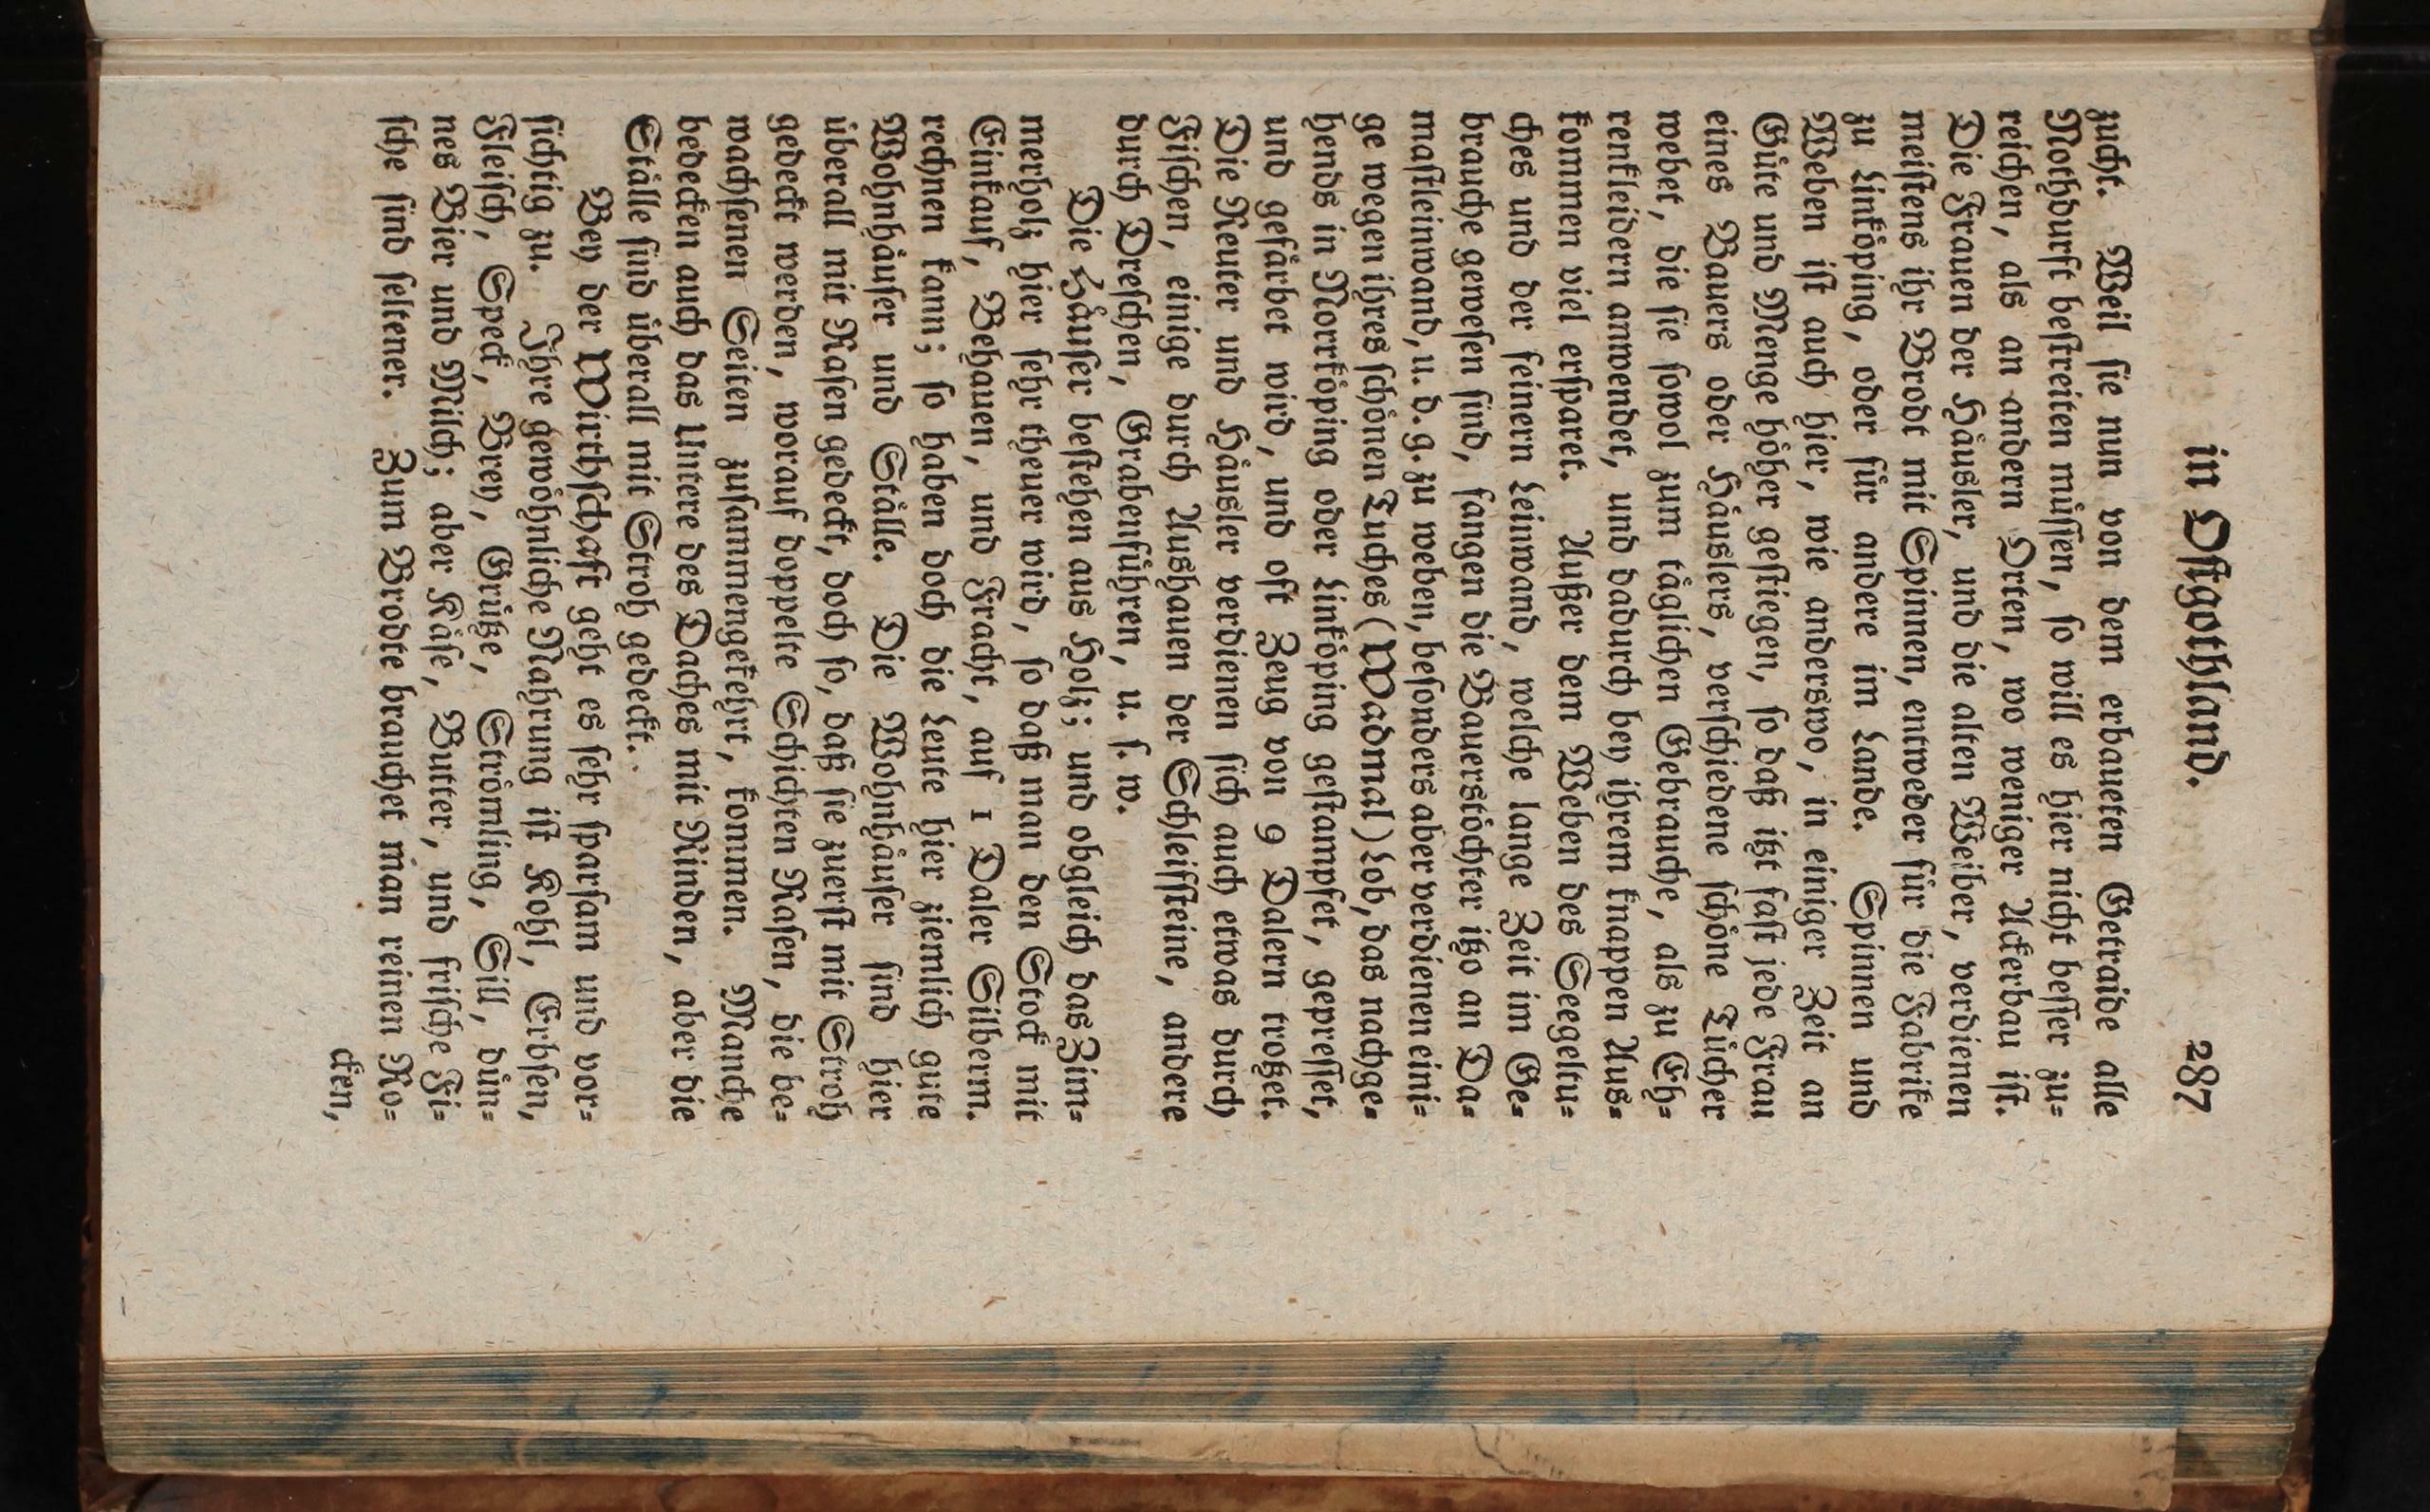 in Oſtgothland. 287
zucht. Weil ſie nun von dem erbaueten Getraide alle
Nothdurft beſtreiten müſſen, ſo will es hier nicht beſſer zu-
reichen, als an andern Orten, wo weniger Ackerbau iſt.
Die Frauen der Häusler, und die alten Weiber, verdienen
meiſtens ihr Brodt mit Spinnen, entweder für die Fabrike
zu Linköping, oder für andere im Lande. Spinnen und
Weben iſt auch hier, wie anderswo, in einiger Zeit an
Güte und Menge höher geſtiegen, ſo daß itzt faſt jede Frau
eines Bauers oder Häuslers, verſchiedene ſchöne Tücher
webet, die ſie ſowol zum täglichen Gebrauche, als zu Eh-
renkleidern anwendet, und dadurch bey ihrem knappen Aus-
kommen viel erſparet. Außer dem Weben des Seegeltu-
ches und der feinern Leinwand, welche lange Zeit im Ge-
brauche geweſen ſind, fangen die Bauerstöchter itzo an Da-
maſtleinwand, u. d. g. zu weben, beſonders aber verdienen eini-
ge wegen ihres ſchönen Tuches (Wadmal) Lob, das nachge-
hends in Norrköping oder Linköping geſtampfet, gepreſſet,
und gefärbet wird, und oft Zeug von 9 Dalern trotzet.
Die Reuter und Häusler verdienen ſich auch etwas durch
Fiſchen, einige durch Aushauen der Schleifſteine, andere
durch Dreſchen, Grabenführen, u. ſ. w.
Die Häuſer beſtehen aus Holz; und obgleich das Zim-
merholz hier ſehr theuer wird, ſo daß man den Stock mit
Einkauf, Behauen, und Fracht, auf 1 Daler Silberm.
rechnen kann; ſo haben doch die Leute hier ziemlich gute
Wohnhäuſer und Ställe. Die Wohnhäuſer ſind hier
überall mit Raſen gedeckt, doch ſo, daß ſie zuerſt mit Stroh
gedeckt werden, worauf doppelte Schichten Raſen, die be-
wachſenen Seiten zuſammengekehrt, kommen. Manche
bedecken auch das Untere des Daches mit Rinden, aber die
Ställe ſind überall mit Stroh gedeckt.
Bey der Wirthſchaft geht es ſehr ſparſam und vor-
ſichtig zu. Ihre gewöhnliche Nahrung iſt Kohl, Erbſen,
Fleiſch, Speck, Brey, Grütze, Strömling, Sill, dün-
nes Bier und Milch; aber Käſe, Butter, und friſche Fi-
ſche ſind ſeltener. Zum Brodte brauchet man reinen Ro-
cken,